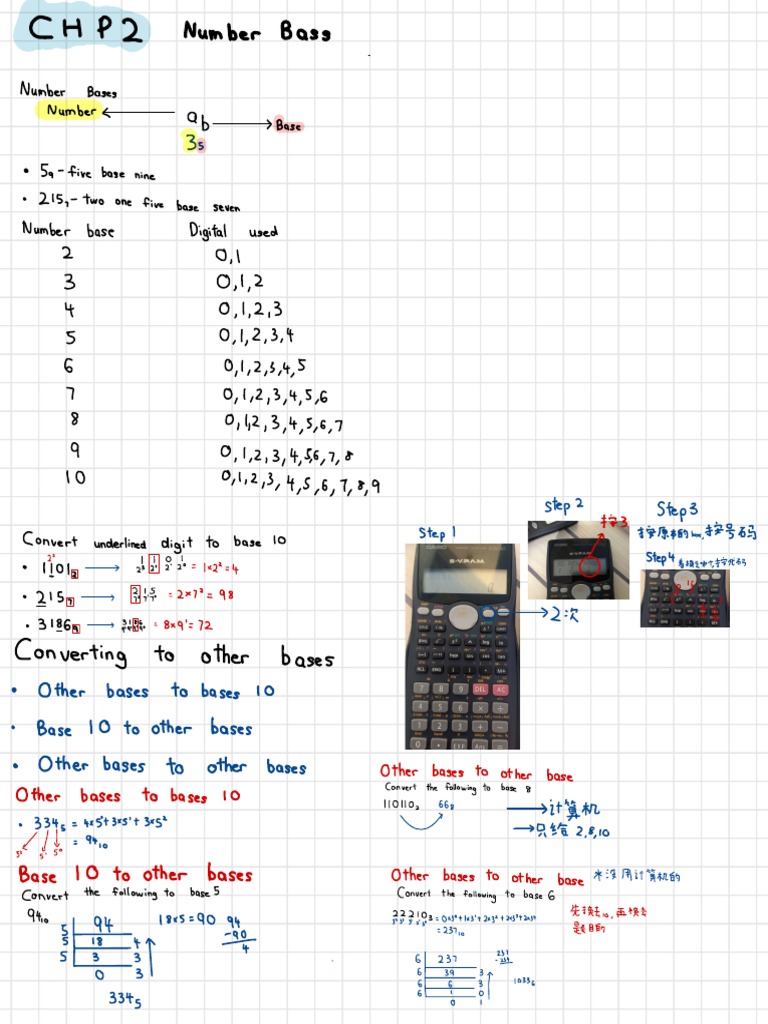 CHP2 Number Bass
Number Bases
Number ← a b → Base
3 5
• 5₉ - five base nine
• 215₇ - two one five base seven
Number base Digital used
2 0,1
3 0,1,2
4 0,1,2,3
5 0,1,2,3,4
6 0,1,2,3,4,5
7 0,1,2,3,4,5,6
8 0,1,2,3,4,5,6,7
9 0,1,2,3,4,5,6,7,8
10 0,1,2,3,4,5,6,7,8,9
Convert underlined digit to base 10
• 1101₂ → = 1×2²=4
• 215₇ → = 2×7²= 98
• 3186₉ → = 8×9¹=72
Step 1
→2次
Step 2
按3
Step 3
Step 4
S-V.P.A.M.
Converting to other bases
• Other bases to bases 10
• Base 10 to other bases
• Other bases to other bases
Other bases to bases 10
• 334₅ = 4×5⁰+3×5¹+3×5²
= 94₁₀
5² 5¹ 5⁰
Base 10 to other bases
Convert the following to base 5
94₁₀
5 94
5 18 4
5 3 3
0 3
18×5=90
94
-90
4
334₅
Other bases to other base
Convert the following to base 8
110110₂ 66₈
→计算机
→只给 2,8,10
Other bases to other base
Convert the following to base 6
22210₃ = 0×3⁰+1×3¹+2×3²+2×3³+2×3⁴
= 237₁₀
6 237
6 39 3
6 6 3
6 1 0
0 1
1033₆